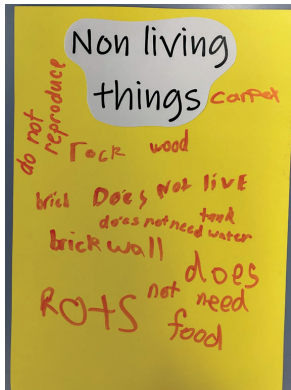 Non living
things
carpet
do not
reproduce
rock
wood
brick
Does Not livE
tank
does not need water
brick wall
does
not need
food
ROtS